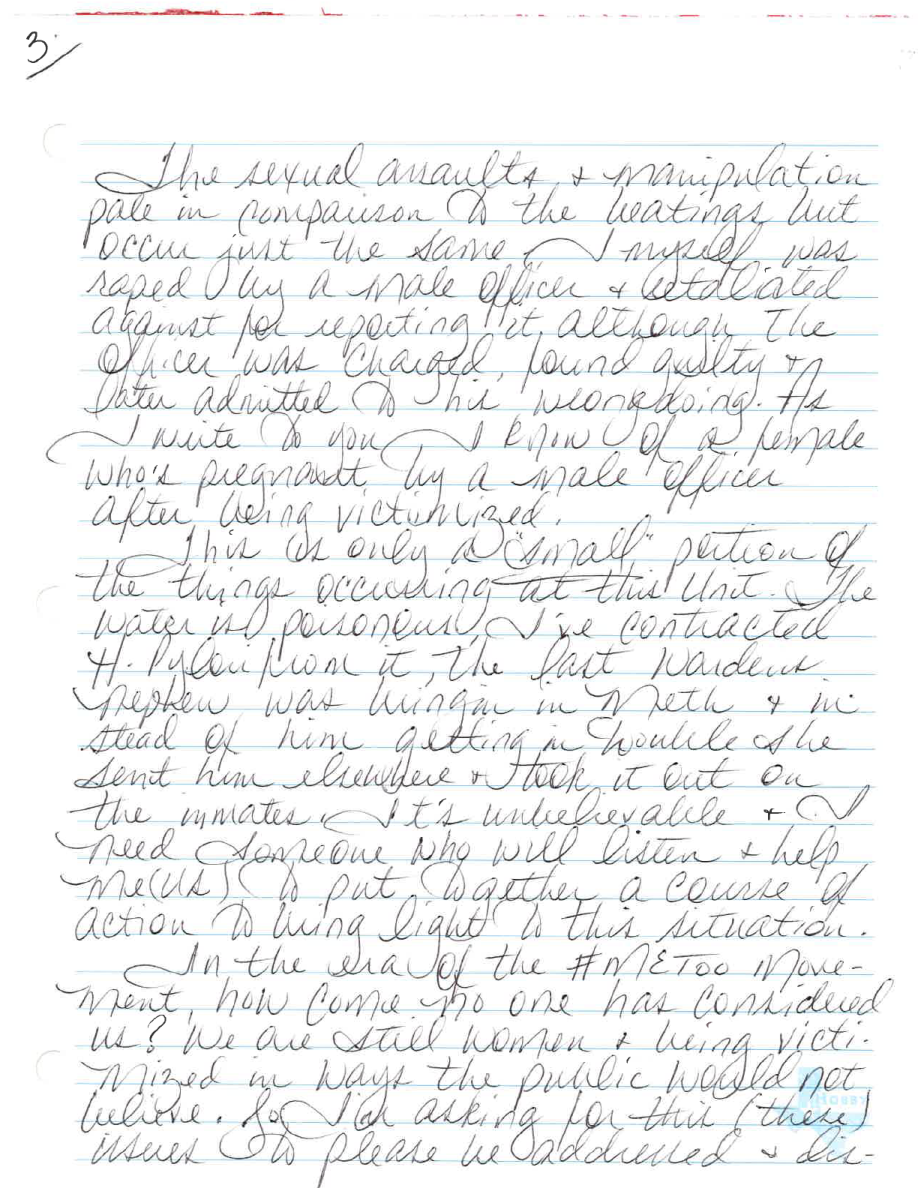 3.
The sexual assaults & manipulation
pale in comparison to the beatings but
occur just the same. I myself was
raped by a male officer & retaliated
against for reporting it, although the
officer was charged, found guilty &
later admitted to his wrongdoing. As
I write to you I know of a female
who's pregnant by a male officer
after being victimized.
This is only a "small" portion of
the things occurring at this Unit. The
water is poisonous, I've contracted
H. Pylori from it, the last Wardens
nephew was bringin in Meth & in
stead of him getting in trouble she
sent him elsewhere & took it out on
the inmates. It's unbelievable & I
need someone who will listen & help
me(us) to put together a course of
action to bring light to this situation.
In the era of the #METOO Move-
ment, how come no one has considered
us? We are still women & being victi-
mized in ways the public would not
believe. So I'm asking for this (these)
issues to please be addressed & dis-
HOBBY